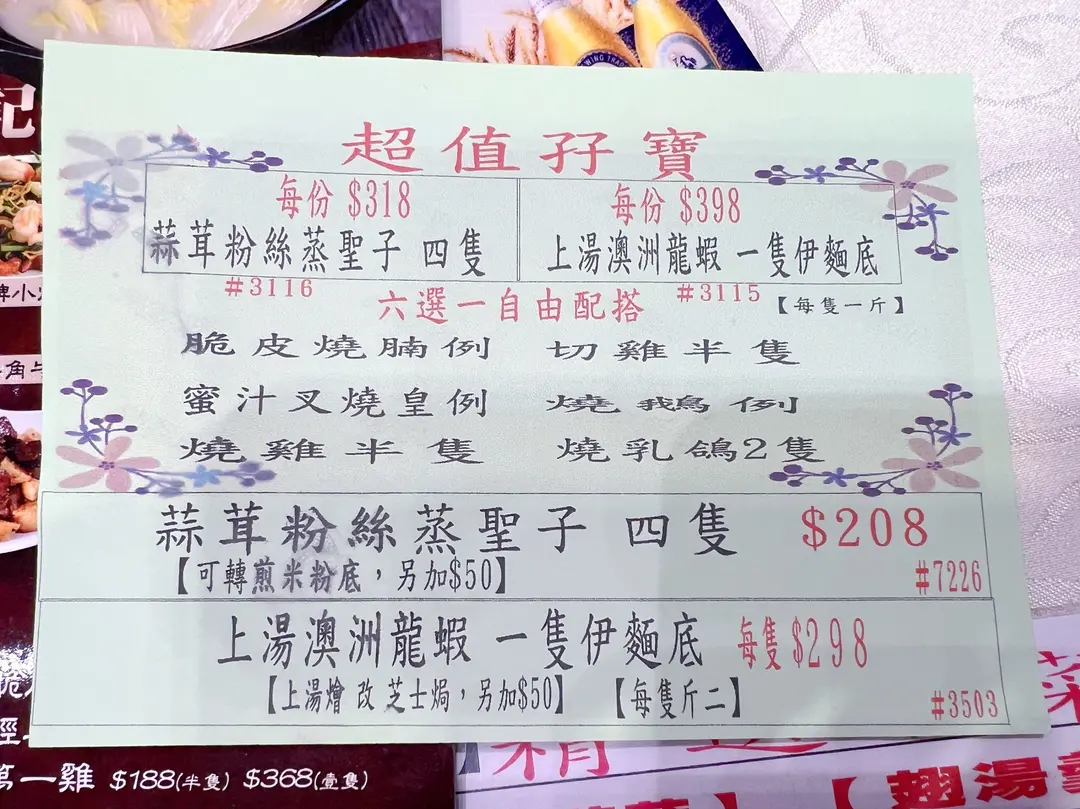 超值孖寶
每份 $318
蒜茸粉絲蒸聖子 四隻
#3116
每份 $398
上湯澳洲龍蝦 一隻伊麵底
#3115 【每隻一斤】
六選一自由配搭
脆皮燒腩例 切雞半隻
蜜汁叉燒皇例 燒鵝例
燒雞半隻 燒乳鴿2隻
蒜茸粉絲蒸聖子 四隻 $208
【可轉煎米粉底，另加$50】 #7226
上湯澳洲龍蝦 一隻伊麵底 每隻$298
【上湯燴 改 芝士焗，另加$50】 【每隻斤二】
#3503
記
一雞 $188(半隻) $368(壹隻)
翅湯